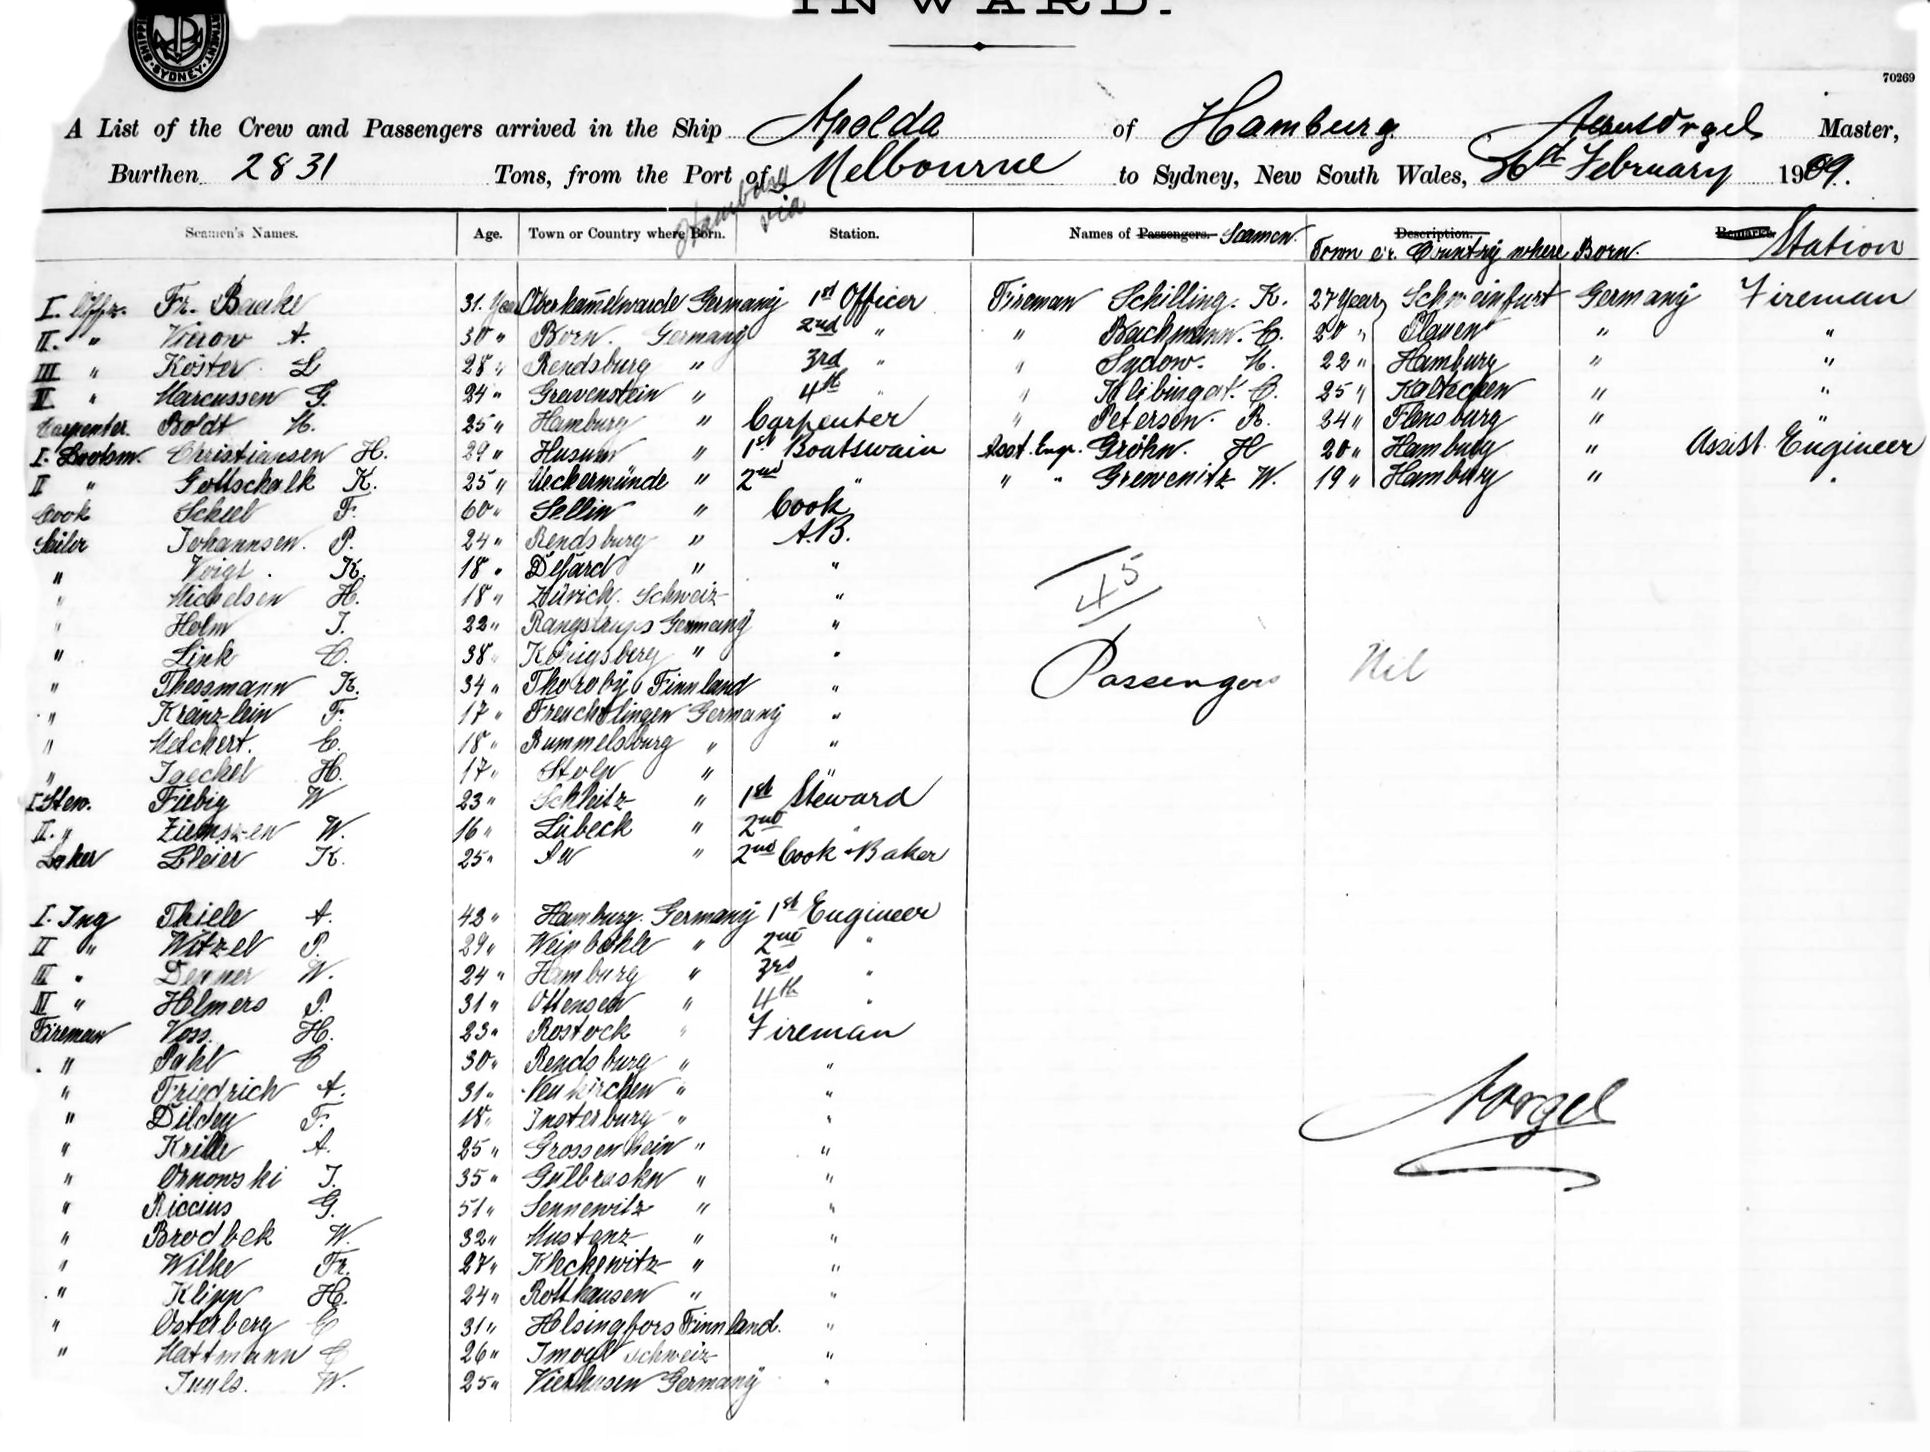 INWARD.
SYDNEY
70269
A List of the Crew and Passengers arrived in the Ship Apolda of Hamburg, Master,
Burthen 2831 Tons, from the Port of Melbourne to Sydney, New South Wales, 26th February 1909.
Hamburg via
Seamen's Names. Age. Town or Country where Born. Station. Names of Passengers. Seamen. Description. Town or Country where Born. Remarks. Station
I. Offz. Fr. Baake 31. Years Germany 1st Officer Fireman Schilling. K. 27 Years Schweinfurt Germany Fireman
II. " Vierow A. 30 " Born. Germany 2nd " " Bachmann. C. 20 " Plauen " "
III " Köster L 28 " Rendsburg " 3rd " " Sydow. M. 22 " Hamburg " "
" Marcussen G. 24 " Gravenstein " 4th " " C. 25 " " "
Carpenter. Boldt M. 25 " Hamburg " Carpenter " Petersen. R. 24 " Flensburg " "
I. Bootsm. Christiansen H. 29 " Husum " 1st Boatswain Asst. Engr. Gröhn. H 20 " Hamburg " Assist Engineer
II " Gottschalk K. 25 " Ueckermünde " 2nd " " " Grewenitz W. 19 " Hamburg " "
Cook Scheel F. 60 " Sellin " Cook
Sailor Johannsen. P. 24 " Rendsburg " A.B.
" Voigt. K. 18 " " "
" Michelsen H. 18 " Zürich. Schweiz "
" Holm J. 22 " Germany "
" Link C. 38 " Königsberg " "
" Thessmann K. 34 " Finnland "
" Kränzlein F. 17 " Treuchtlingen Germany "
" Melchert. C. 18 " Rummelsburg " "
" Jaeckel H. 17 " Stolp "
I. Stew. Fiebig W 23 " Schleitz " 1st Steward
II. " Ziemszen W. 16 " Lübeck " 2nd "
Baker Bleier K. 25 " Au " 2nd Cook & Baker
45
Passengers Nil
I. Ing Thiele A. 42 " Hamburg. Germany 1st Engineer
II " Witzel P. 29 " Weinböhle " 2nd "
III " Denner W. 24 " Hamburg " 3rd "
IV " Helmers P. 31 " Ottensen " 4th "
Fireman Voss. H. 23 " Rostock " Fireman
" Pahl C 30 " Rendsburg " "
" Friedrich A. 31 " Neukirchen " "
" Dildey F. 18 " Insterburg " "
" Krille A. 25 " Grossenhein " "
" Ornowski J. 35 " " "
" Riccius G. 51 " Sennewitz " "
" Brodbek W. 32 " Mustenz " "
" Wilke Fr. 27 " Kleckewitz " "
" Klipp H. 24 " Rotthausen " "
" Osterberg C 31 " Helsingfors Finnland. "
" Hattmann C 26 " Schweiz "
W. 25 " Germany "